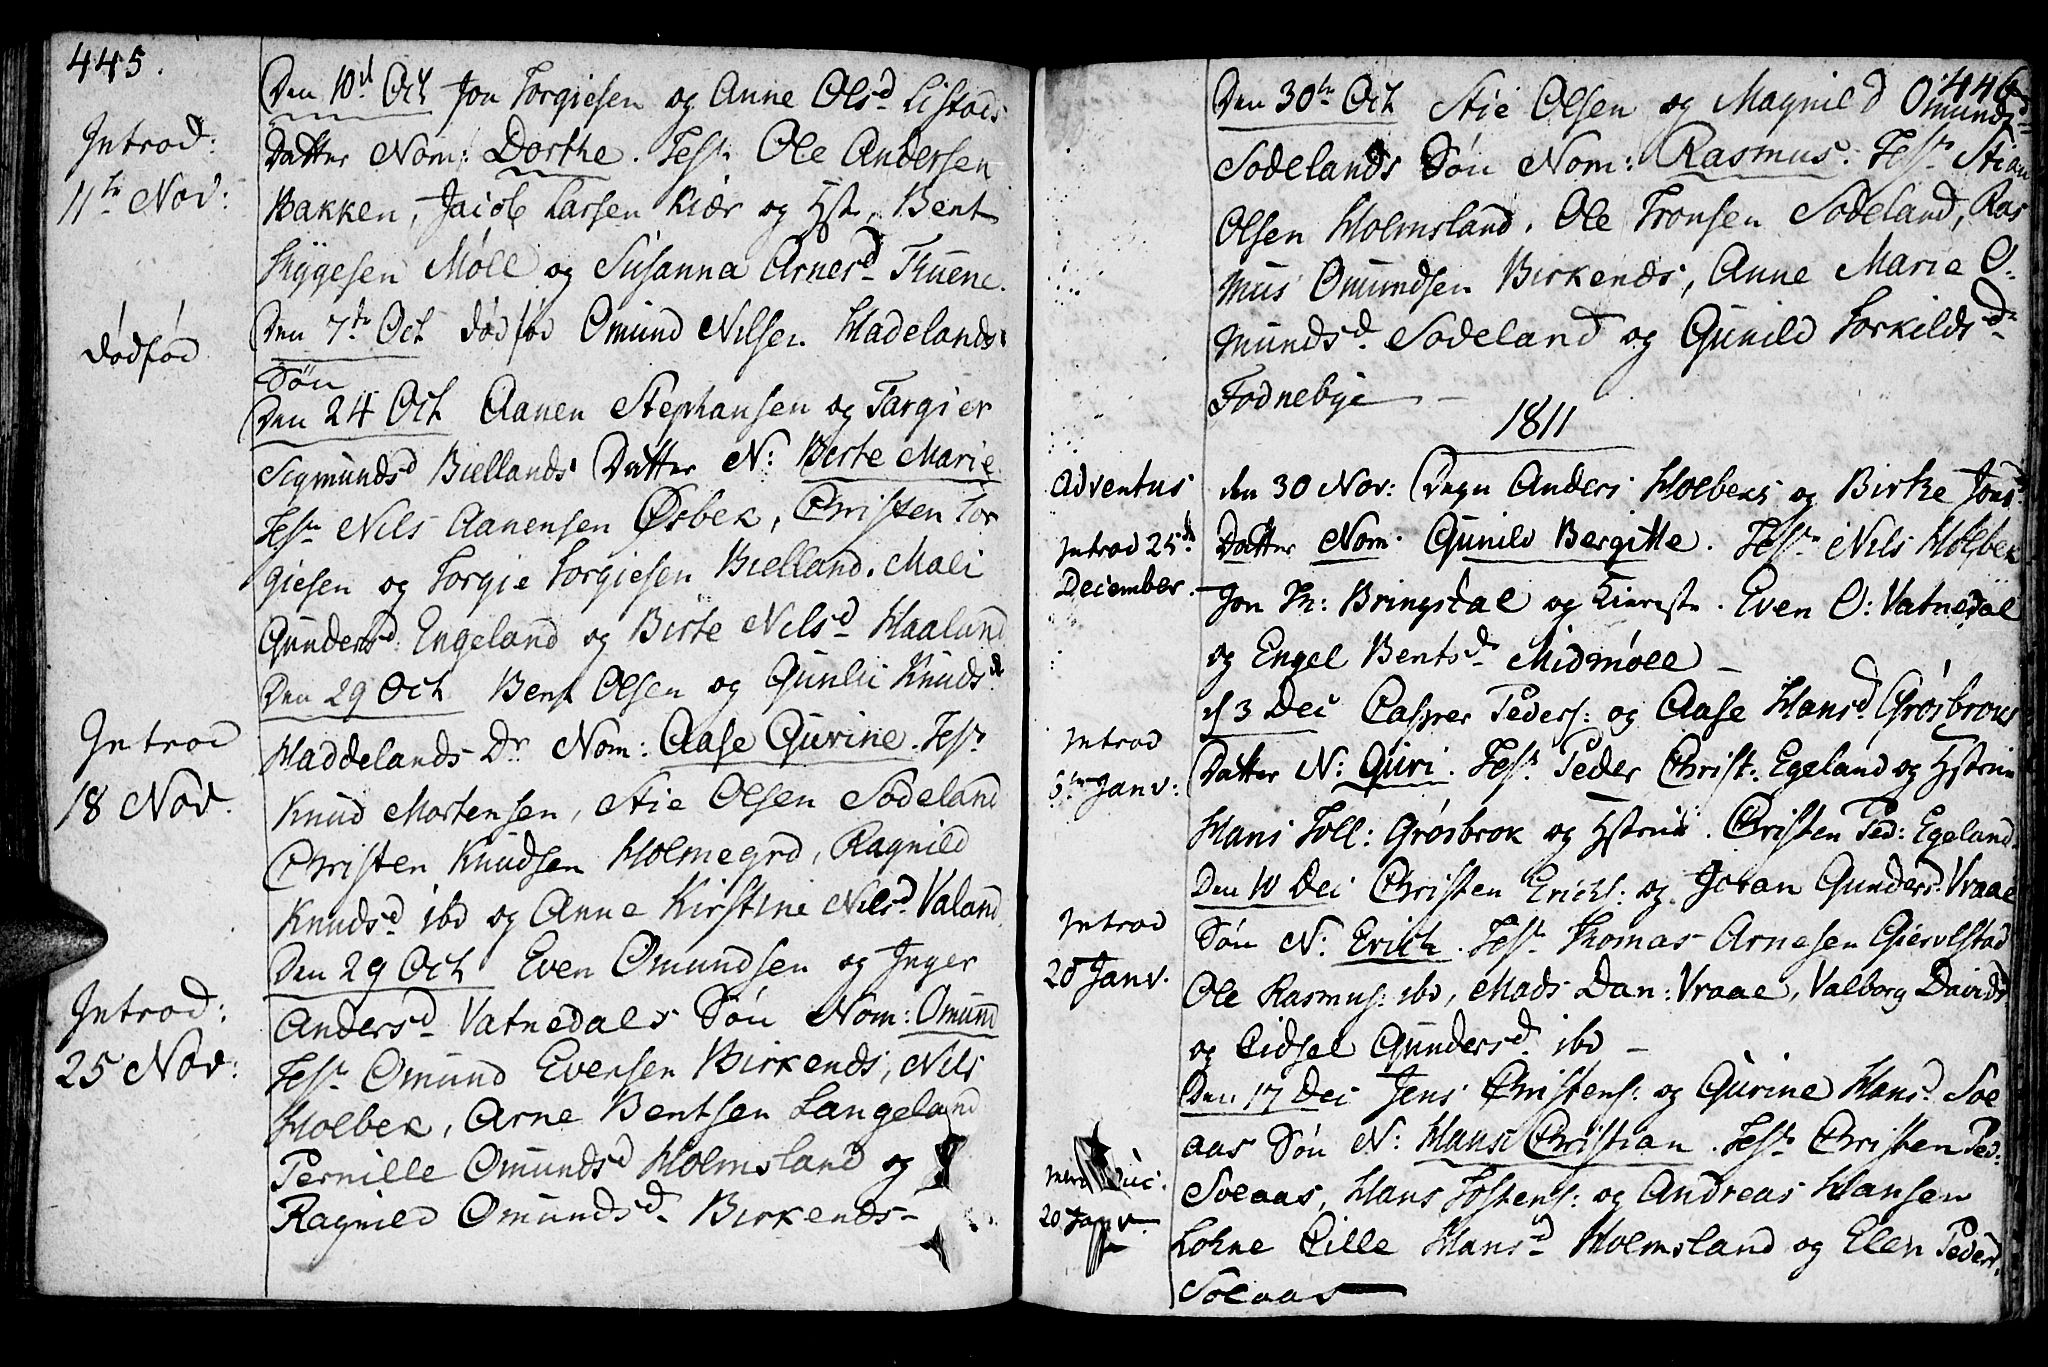 445.
Introd:
11te Nov:
dødfød
Introd
18 Nov.
Introd:
25 Nov:
Den 10d Oct Jon Torgiesen og Anne Olsd Listads
Datter Nom: Dorthe. Test: Ole Andersen
Bakken, Jacob Larsen Kiær og Hst, Bent
Thygesen Møll og Susanna Arnesd Thuene.
Den 7de Oct dødfød Omund Nilsen Hadelands
Søn
Den 24 Oct Aanen Stephansen og Targier
Sigmundsd Biellands Datter N: Birte Marie
Test. Nils Aanensen Øsbek, Christen Tor
giesen og Torgie Torgiesen Bielland. Mali
Gundersd: Engeland og Birte Nilsd Haaland
Den 29 Oct Bent Olsen og Gunlii Knudsd
Haddelands Dr Nom: Aase Gurine. Test.
Knud Mortensen, Stie Olsen Sodeland
Christen Knudsen Holmegrd, Ragnild
Knudsd ibd og Anne Kirstine Nilsd Valand
Den 29 Oct Even Omundsen og Inger
Andersd Vatnedals Søn Nom: Omund
Test. Omund Evensen Birkenes, Nils
Holbek, Arne Bentsen Langeland
Pernille Omundsd Holmsland og
Ragnild Omundsd Birkenes-
446
Den 30te Oct Stie Olsen og Magnild Omunds
Sodelands Søn Nom: Rasmus. Test. Stian
Olsen Holmsland. Ole Tronsen Sodeland, Ras
mus Omundsen Birkenes, Anne Marie O-
mundsd. Sodeland og Gunild Torkildsd
Fodnebye -
1811
Adventus
Introd 25d
December.
den 30 Nov: Dagn Anders Holbeks og Birthe Jonsd
Datter Nom. Gunild Bergitte. Test. Nils Holbek
Jon Th: Bringsdal og Kiereste. Even O: Vatnedal
og Engel Bentsd Midmøll -
d 3 Dec Casper Peders: og Aase Hansd Grøsbroks
Introd
6te Janv:
Datter N: Guri. Test. Peder Christ: Egeland og Hstrue
Hans Toll: Grøsbrok og Hstrue. Christen Ped: Egeland.
Den 10 Dec Christen Erichs: og Joran Gundersd Vraae
Introd
20 Janv.
Søn N: Erich. Test. Thomas Arnesen Giervlstad
Ole Rasmus: ibd, Mads Dan: Vraae, Valborg Davidsd
og Cidsel Gundersd. ibd -
Den 17 Dec Jens Christens: og Gurine Hansd. Soe
aas Søn N: Hans Christian. Test. Christen Ped:
20 Janv
Soeaas, Hans Tostens: og Andreas Hansen
Lohne Cille Hansd Holmsland og Elen Pedersd.
Soeaas